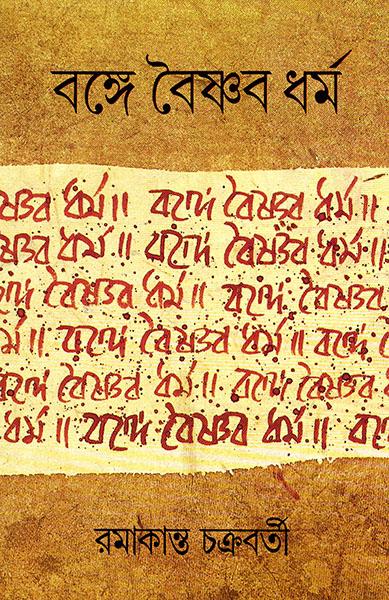 বঙ্গে বৈষ্ণব ধর্ম
ষ্ণব ধর্ম॥ বঙ্গে বৈষ্ণব ধর্ম॥
ষ্ণব ধর্ম॥ বঙ্গে বৈষ্ণব ধর্ম॥
ঙ্গে বৈষ্ণব ধর্ম॥ বঙ্গে বৈষ্ণব
র্ম॥ বঙ্গে বৈষ্ণব ধর্ম॥ বঙ্গে
বঙ্গে বৈষ্ণব ধর্ম॥ বঙ্গে বৈষ্ণব
ধর্ম॥ বঙ্গে বৈষ্ণব ধর্ম॥ বঙ্গে
রমাকান্ত চক্রবর্তী